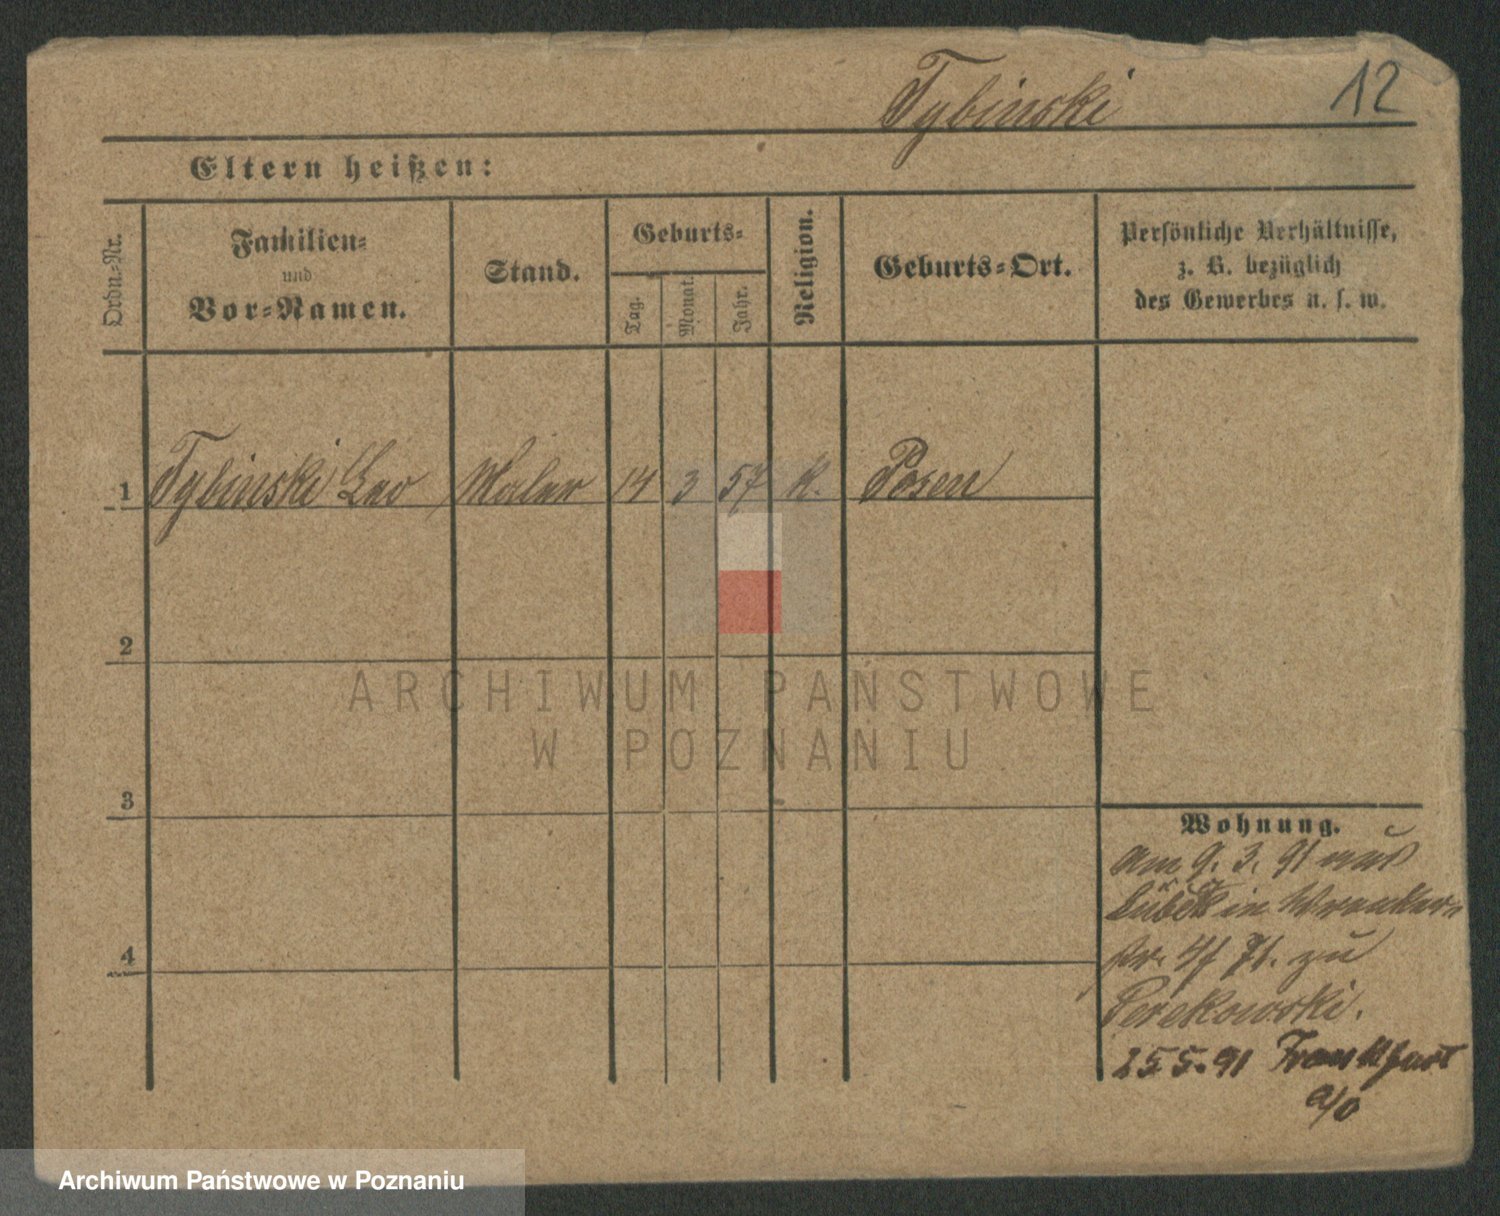 Tybinski
12
Eltern heißen:
Ordn-Nr.
Familien-
und
Vor-Namen.
Stand.
Geburts-
Tag.
Monat.
Jahr.
Religion.
Geburts-Ort.
Persönliche Verhältnisse,
z. B. bezüglich
des Gewerbes u. s. w.
1 Tybinski Leo Maler 14 3 57 K. Posen
2
3
4
ARCHIWUM PAŃSTWOWE
W POZNANIU
Wohnung.
am 9. 3. 91 aus
Lübeck in Wronker-
str. 4/ zu
Perekowski.
25.5.91 Frankfurt
a/O
Archiwum Państwowe w Poznaniu